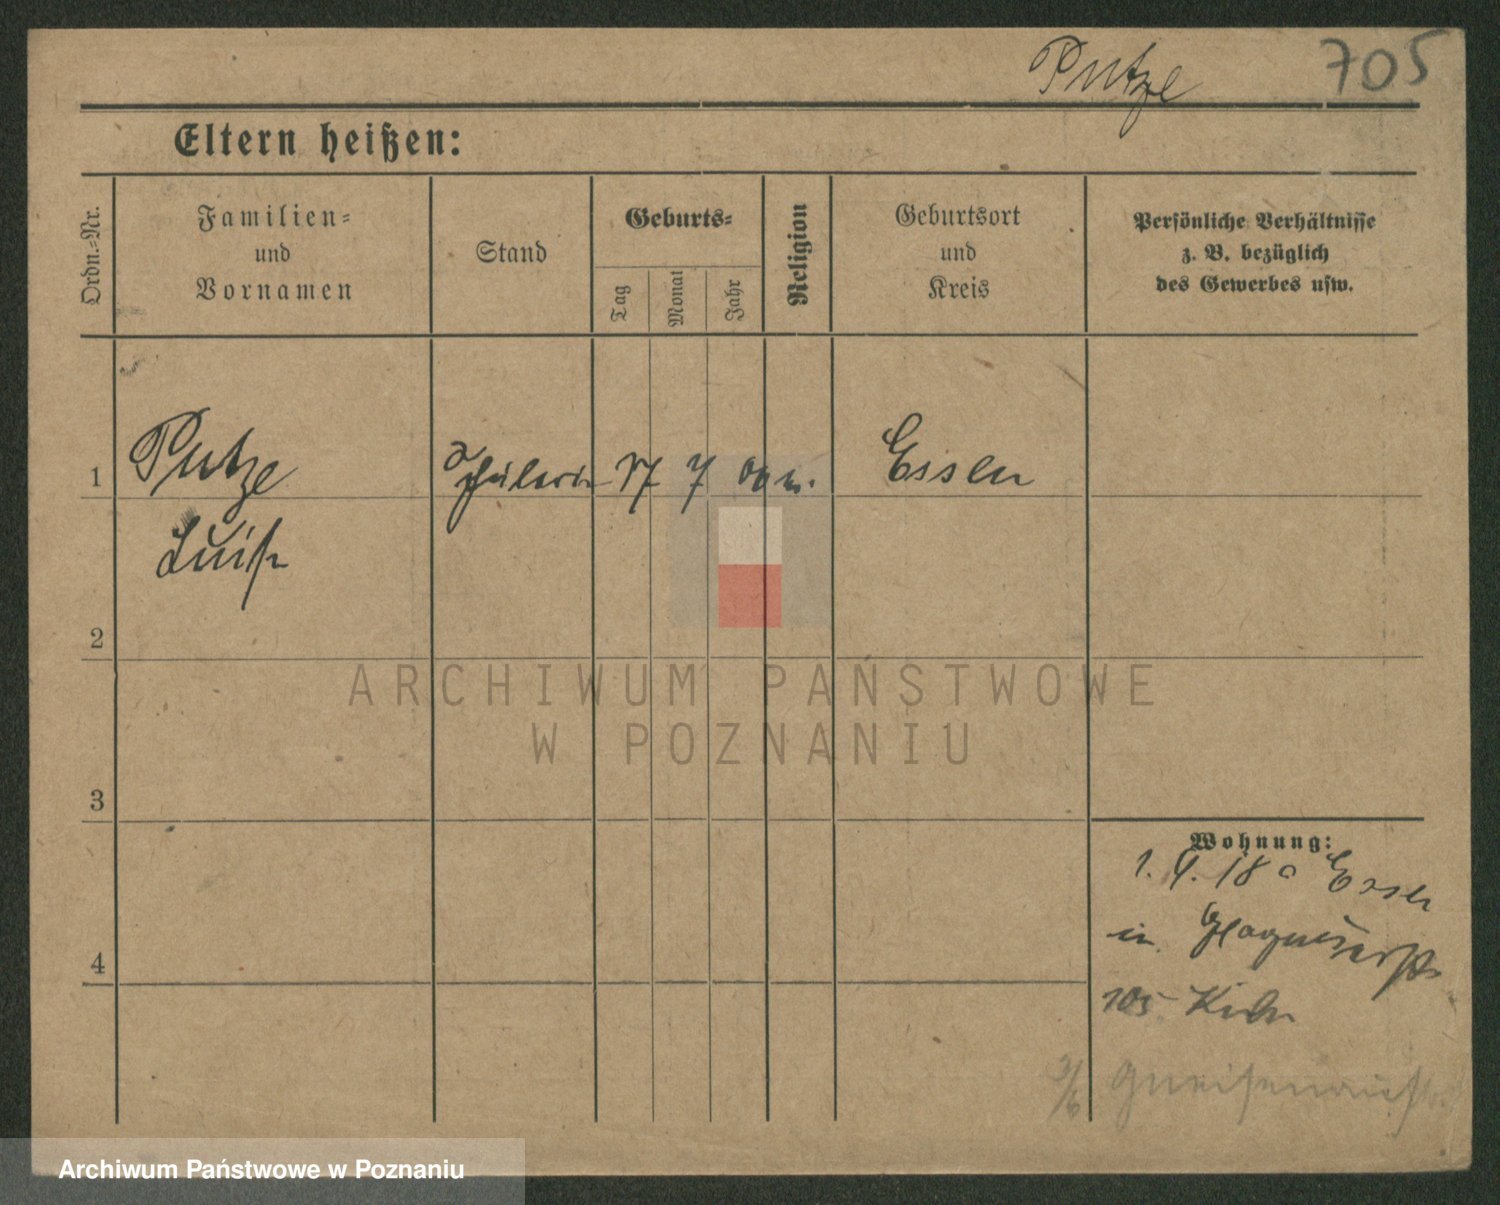 Putze 705
Eltern heißen:
Ordn.=Nr.
Familien=
und
Vornamen
Stand
Geburts=
Tag
Monat
Jahr
Religion
Geburtsort
und
Kreis
Persönliche Verhältnisse
z. B. bezüglich
des Gewerbes usw.
1 Putze Schülerin 17 7 00 Essen
Luise
2
ARCHIWUM PAŃSTWOWE
W POZNANIU
3
Wohnung:
1. 4. 18 Essen
in
105
4
Gneisenaustr.
Archiwum Państwowe w Poznaniu